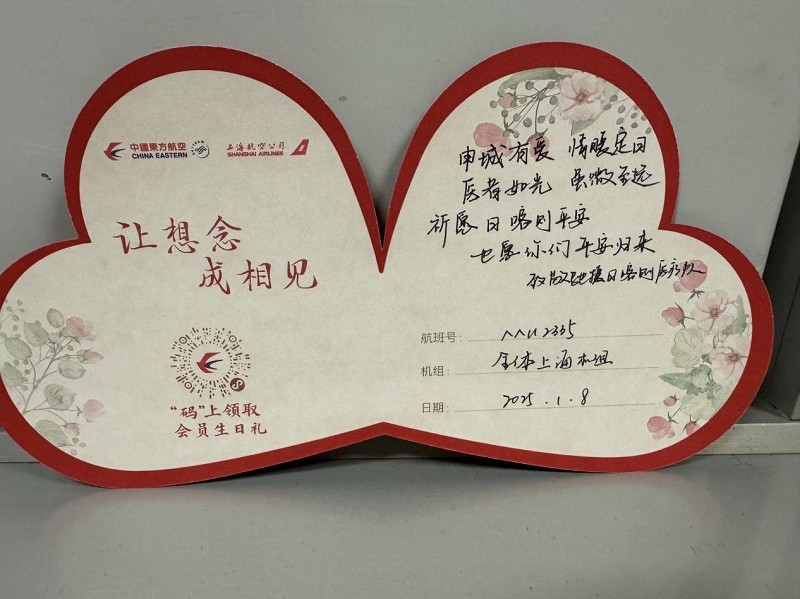 中國東方航空
CHINA EASTERN
上海航空公司
SHANGHAI AIRLINES
让想念
成相见
“码”上领取
会员生日礼
申城有爱 情暖定日
医者如光 虽微至远
祈愿日喀则平安
也愿你们平安归来
致敬驰援日喀则医疗队
航班号: MU2335
机组: 全体上海机组
日期: 2025.1.8